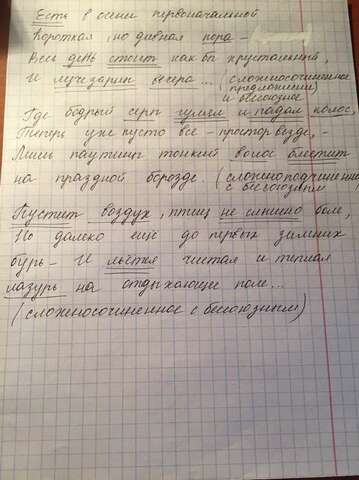 Есть в осени первоначальной
Короткая, но дивная пора -
Весь день стоит как бы хрустальный,
И лучезарны вечера... (сложносочиненное
предложении)
и бессоюзное
Где бодрый серп гулял и падал колос,
Теперь уже пусто все - простор везде, -
Лишь паутины тонкий волос блестит
на праздной борозде. (сложноподчиненное
с бессоюзным
Пустит воздух, птиц не слышно боле,
Но далеко еще до первых зимних
бурь - И льётся чистая и теплая
лазурь на отдыхающее поле...
(сложносочиненное с бессоюзным)